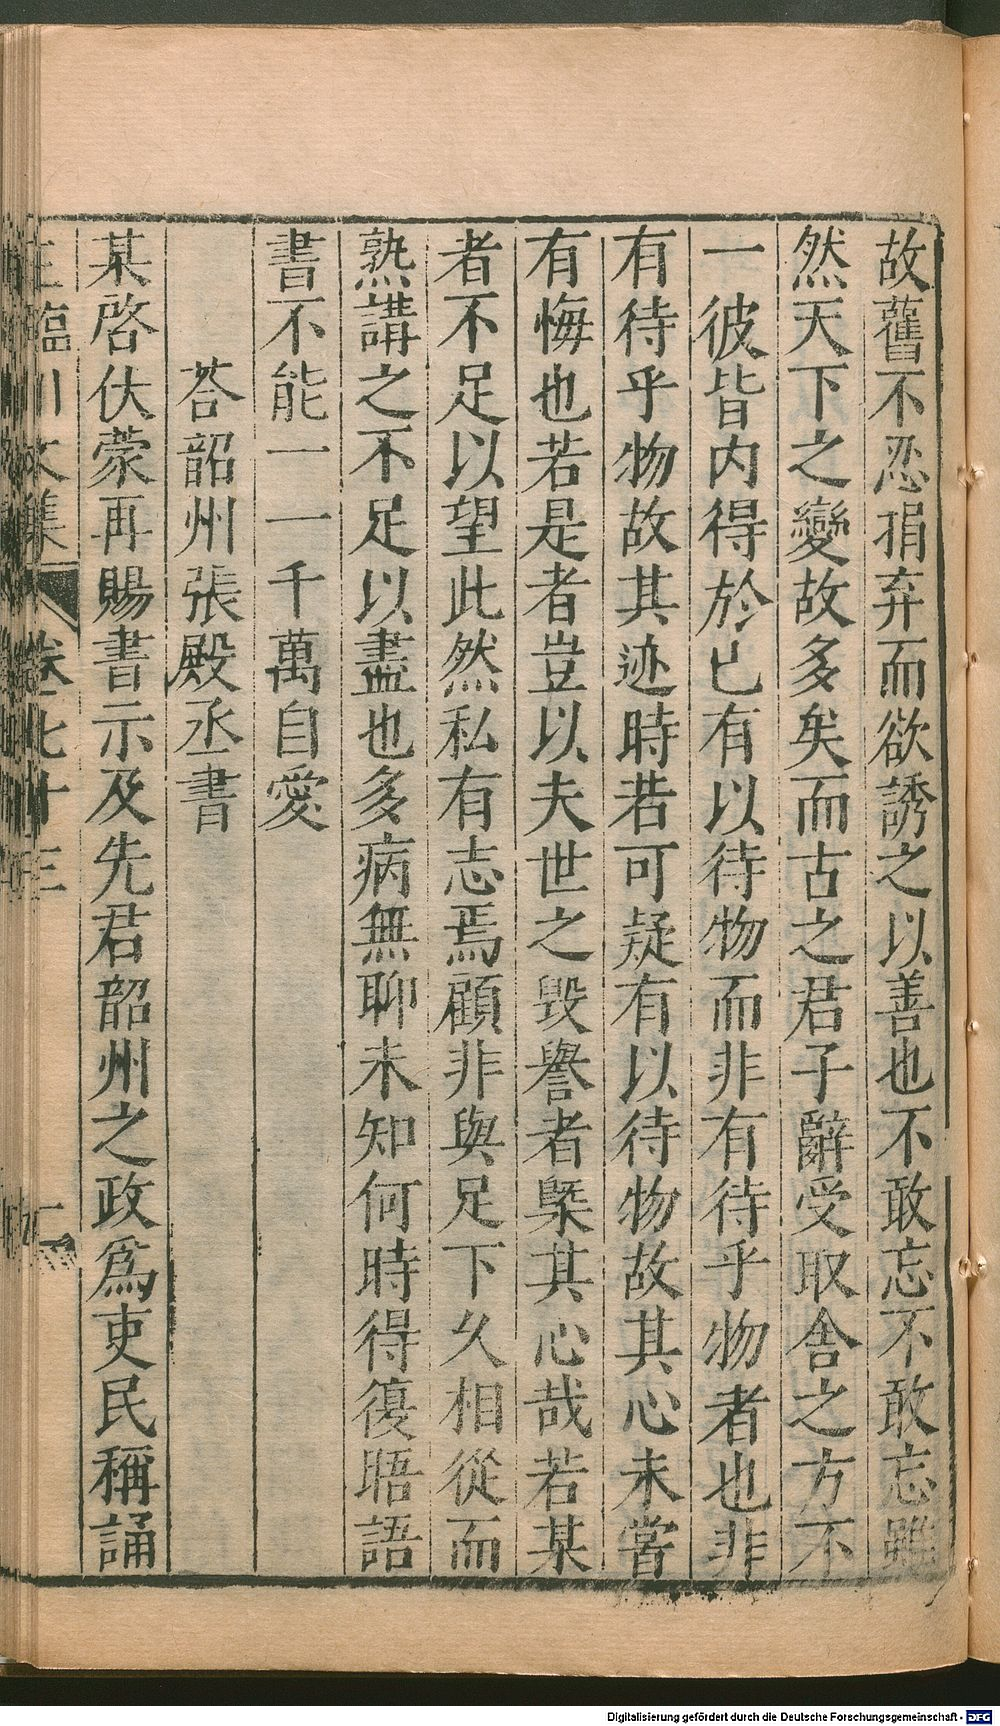 故舊不忍捐弃而欲誘之以善也不敢忘不敢忘雖
然天下之變故多矣而古之君子辭受取舍之方不
一彼皆内得於已有以待物而非有待乎物者也非
有待乎物故其迹時若可疑有以待物故其心未嘗
有悔也若是者豈以夫世之毀譽者槩其心哉若某
者不足以望此然私有志焉顧非與足下久相從而
熟講之不足以盡也多病無聊未知何時得復晤語
書不能一一千萬自愛
荅韶州張殿丞書
某啓伏蒙再賜書示及先君韶州之政爲吏民稱誦
王臨川文集 卷七十三 二
Digitalisierung gefördert durch die Deutsche Forschungsgemeinschaft - DFG